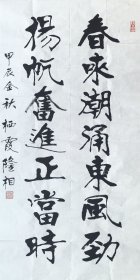 春來潮涌東風勁
揚帆奮進正當時
甲辰金秋栖霞隆相